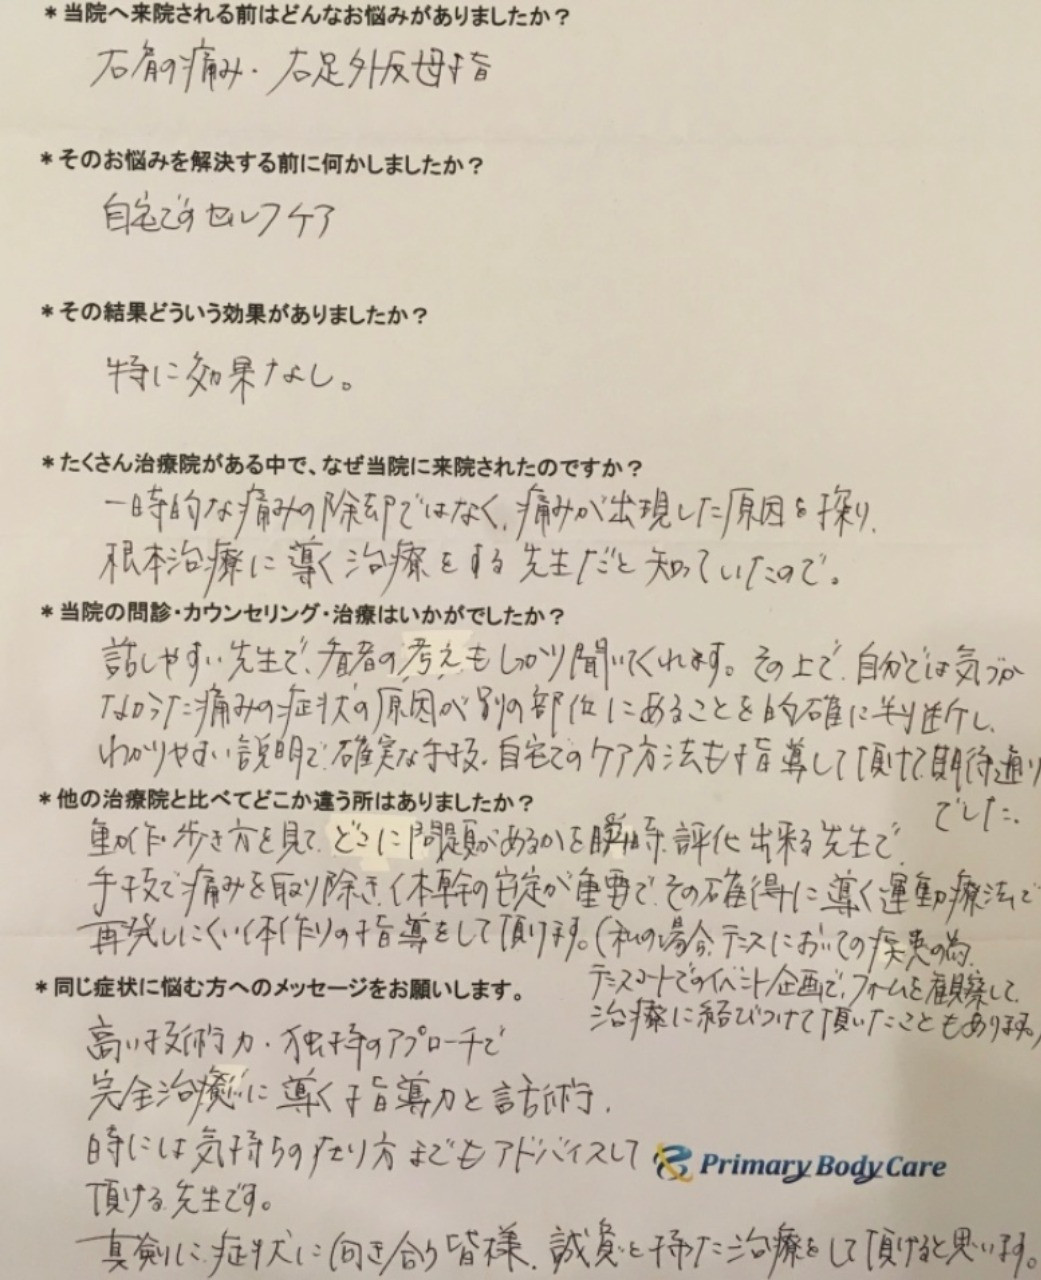 *当院へ来院される前はどんなお悩みがありましたか？
右肩の痛み・右足外反母指
*そのお悩みを解決する前に何かしましたか？
自宅でのセルフケア
*その結果どういう効果がありましたか？
特に効果なし。
*たくさん治療院がある中で、なぜ当院に来院されたのですか？
一時的な痛みの除却ではなく、痛みが出現した原因を探り、
根本治療に導く治療をする先生だと知っていたので。
*当院の問診・カウンセリング・治療はいかがでしたか？
話しやすい先生で、患者の考えもしっかり聞いてくれます。その上で、自分では気づか
なかった痛みの症状の原因が別の部位にあることを的確に判断し、
わかりやすい説明で、確実な手技、自宅でのケア方法も指導して頂けて期待通り
でした。
*他の治療院と比べてどこか違う所はありましたか？
動作・歩き方を見て、どこに問題があるかを瞬時、評価出来る先生で、
手技で痛みを取り除き、体幹の安定が重要で、その確得に導く運動療法で
再発しにくい体作りの指導をして頂けます。（私の場合、テニスにおいての疾患の為、
テニスコートでのイベント企画で、フォームを観察して、
治療に結びつけて頂いたこともあります。）
*同じ症状に悩む方へのメッセージをお願いします。
高い技術力・独特のアプローチで
完全治癒に導く指導力と話術、
時には気持ちの在り方までもアドバイスして
頂ける先生です。
Primary Body Care
真剣に症状に向き合う皆様、誠意を持った治療をして頂けると思います。